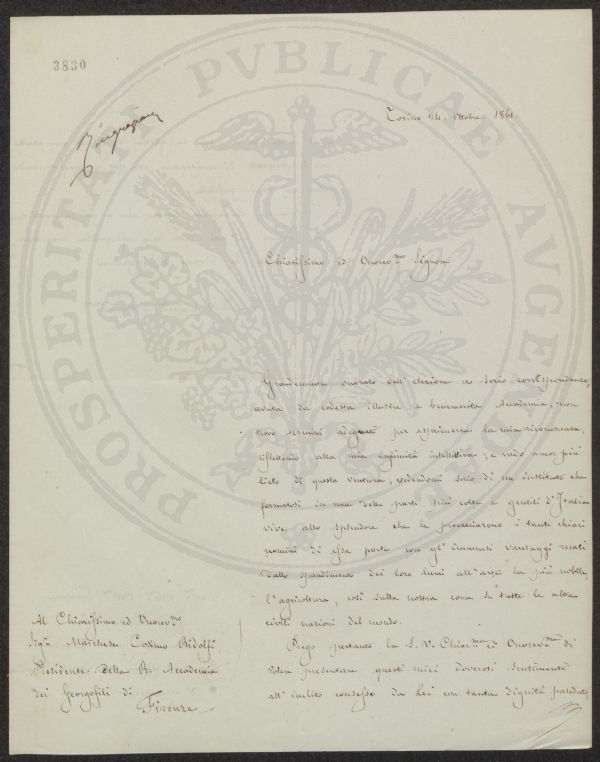 3830
Torino 24. Ottobre 1861.
Chiarissimo ed Onorev.mo Signore
Grandemente onorato dall'elezione a socio corrispondente,
avuta da codesta illustre e benemerita Accademia, non
trovo termini adeguati per esprimerne la mia riconoscenza,
riflettendo alla mia infimità intellettiva; e vado ancor più
lieto di questa ventura, vedendomi socio di un instituto che
formatosi in una delle parti più colte e gentili d'Italia
vive allo splendore che le procacciarono i tanti chiari
uomini di essa parte con gl'immensi vantaggi recati
dallo spandimento dei loro lumi all'arte la più nobile,
l'agricoltura, così sulla nostra come su tutte le altre
civili nazioni del mondo.
Prego pertanto la S. V. Chiar.ma ed Onorev.ma di
voler presentare questi miei doverosi sentimenti
all'inclito consesso da Lei con tanta dignità preseduto
Al Chiarissimo ed Onorev.mo
Sig.r Marchese Cosimo Ridolfi
Presidente della R. Accademia
dei Georgofili di
Firenze
PROSPERITATI PVBLICAE AVGENDAE